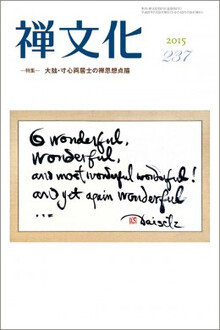 禅文化
2015
237
―特集― 大拙・寸心両居士の禅思想点描
O wonderful,
wonderful,
and most wonderful wonderful!
and yet again wonderful
...
Daisetz